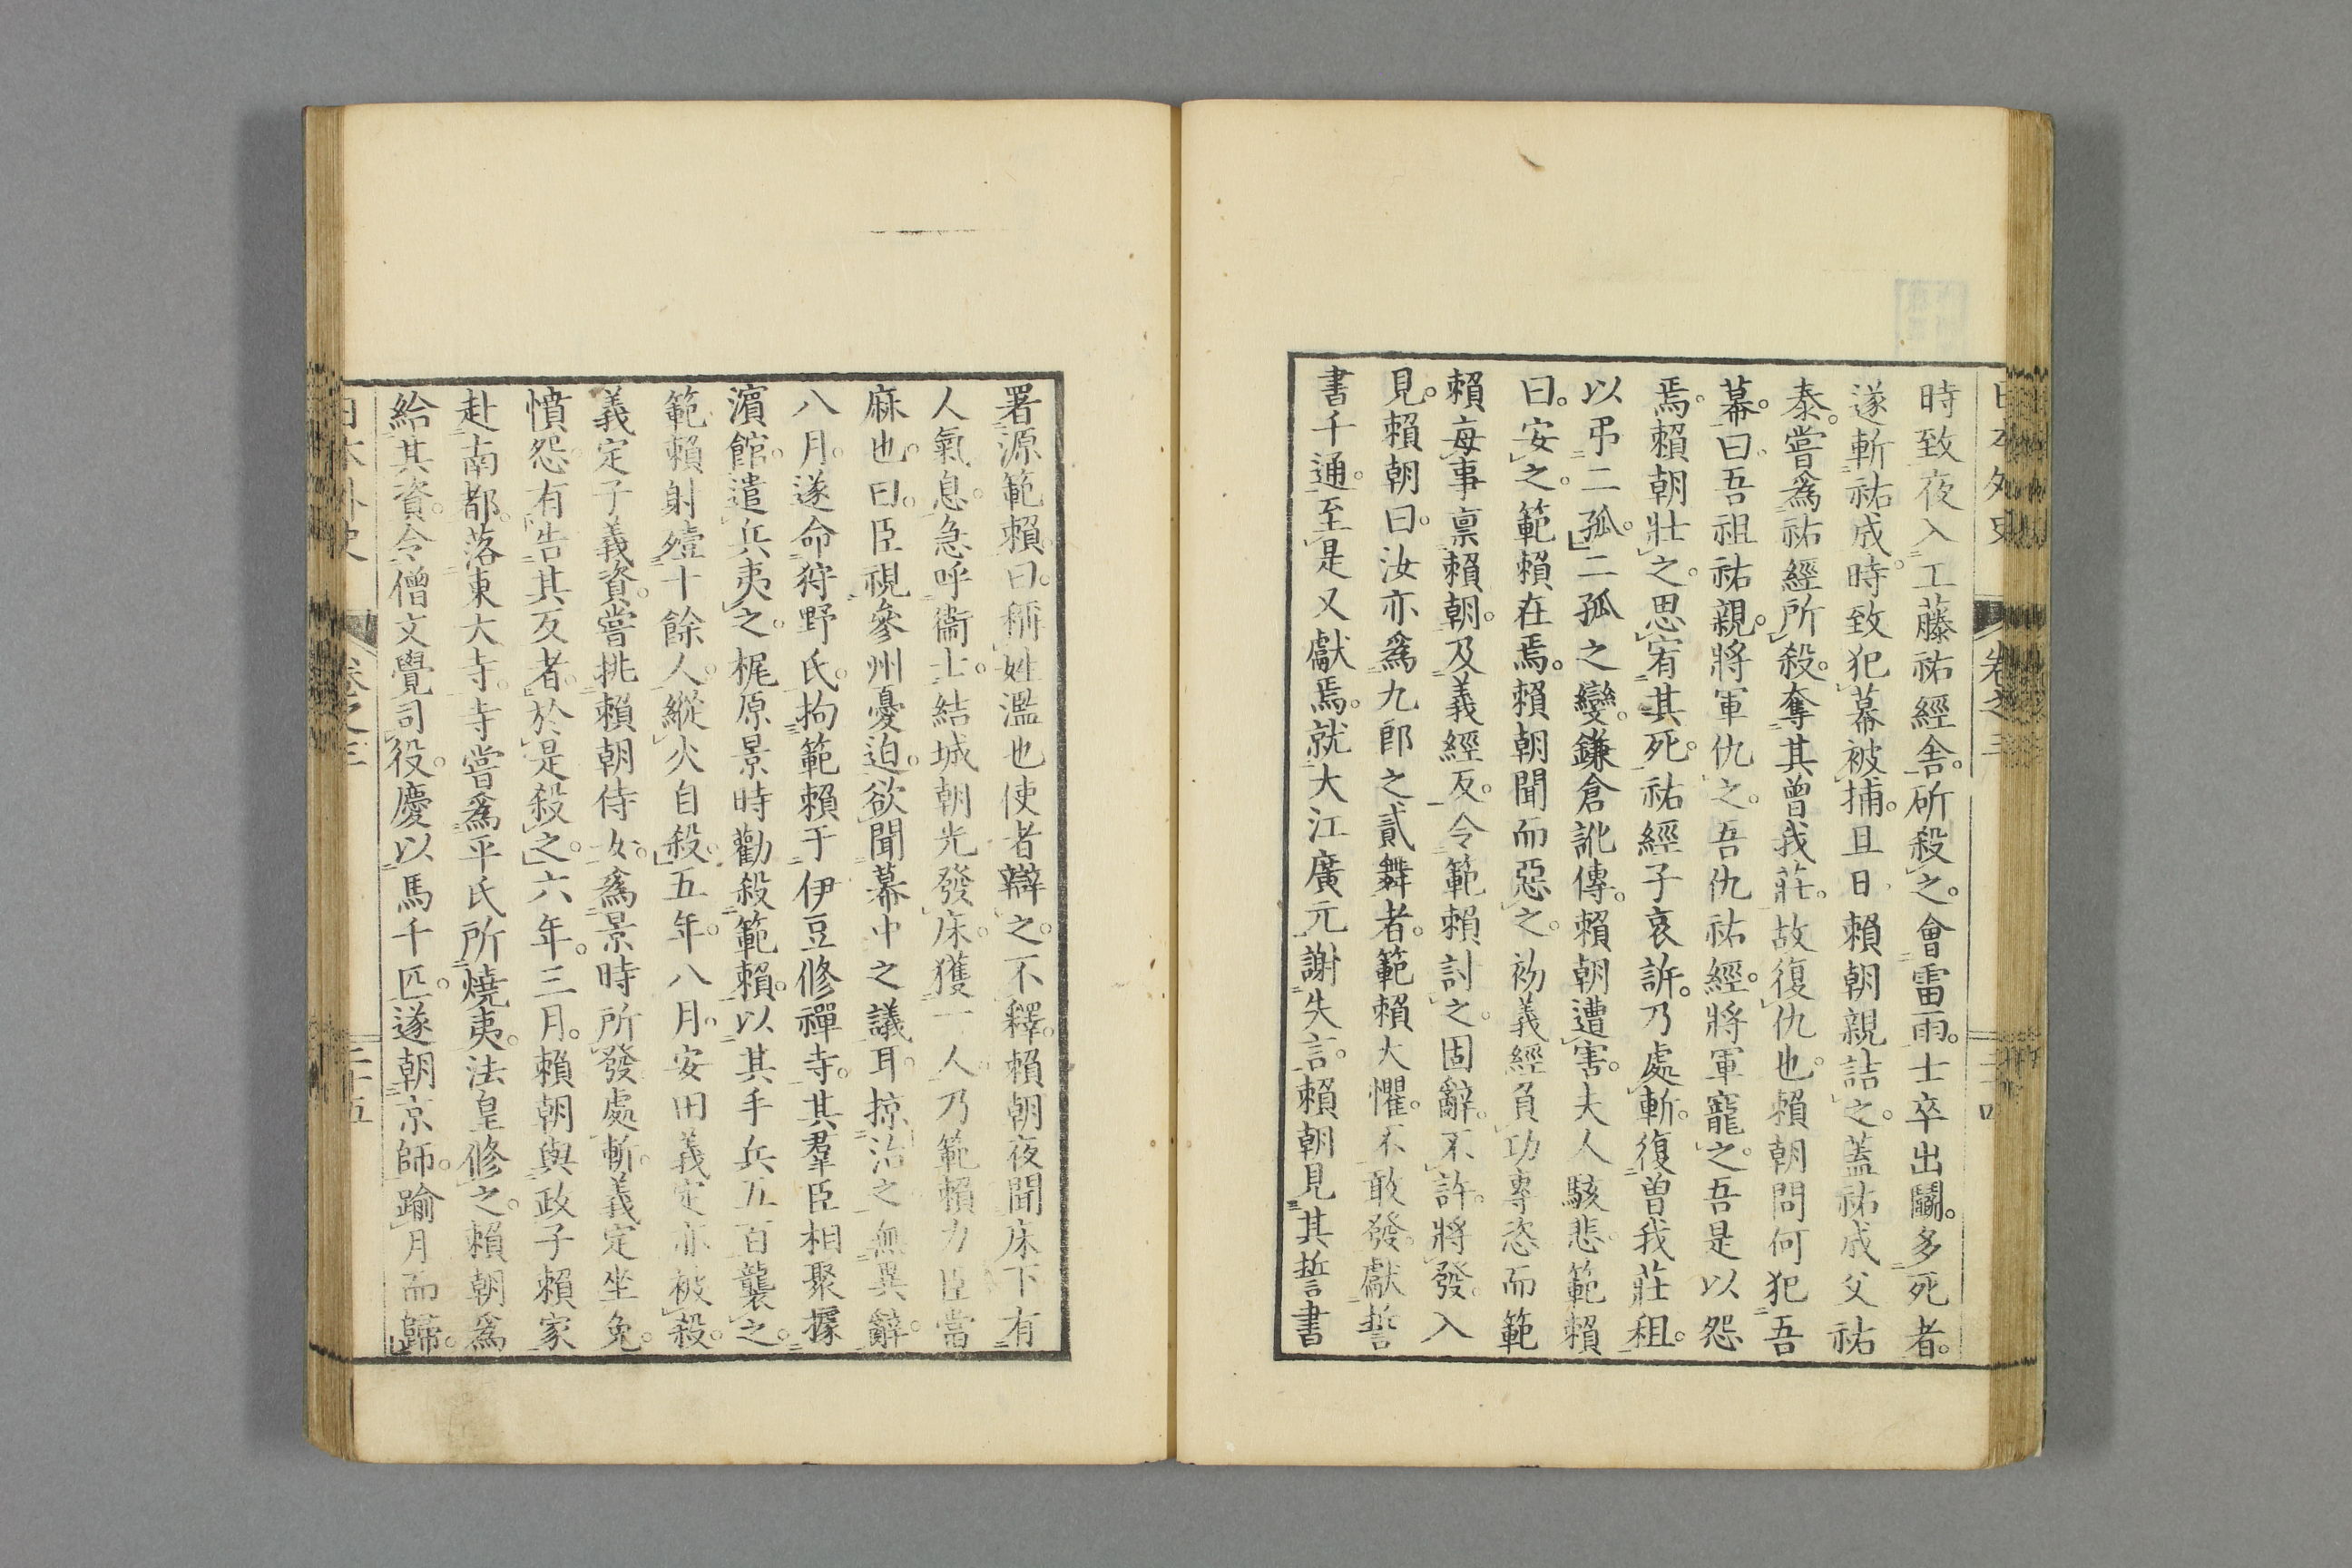 日本外史 卷之三
時致夜入工藤祐經舍。斫殺之。會雷雨。士卒出鬭。多死者。
遂斬祐成。時致犯幕被捕。且日賴朝親詰之。蓋祐成父祐
泰。嘗爲祐經所殺。奪其曾我莊。故復仇也。賴朝問何犯吾
幕。曰。吾祖祐親。將軍仇之。吾仇祐經。將軍寵之。吾是以怨
焉。賴朝壯之。思宥其死。祐經子哀訴。乃處斬。復曾我莊租。
以弔二孤。二孤之變。鎌倉訛傳。賴朝遭害。夫人駭悲。範賴
曰。安之。範賴在焉。賴朝聞而惡之。初義經負功專恣。而範
賴每事禀賴朝。及義經反。令範賴討之。固辭。不許。將發。入
見。賴朝曰。汝亦爲九郎之貳舞者。範賴大懼。不敢發。獻誓
書千通。至是又獻焉。就大江廣元謝失言。賴朝見其誓書
署源範賴。曰。稱姓濫也。使者辯之。不釋。賴朝夜聞床下有
人氣息。急呼衞士。結城朝光發床。獲一人。乃範賴力臣當
麻也。曰。臣視參州憂迫。欲聞幕中之議耳。掠治之。無異辭。
八月。遂命狩野氏。拘範賴于伊豆修禪寺。其羣臣相聚據
濵館。遣兵夷之。梶原景時勸殺範賴。以其手兵五百襲之。
範賴射殪十餘人。縱火自殺。五年。八月。安田義定亦被殺。
義定子義資。嘗挑賴朝侍女。爲景時所發處斬。義定坐免。
憤怨。有告其反者。於是殺之。六年。三月。賴朝與政子賴家
赴南都。落東大寺。寺嘗爲平氏所燒夷。法皇修之。賴朝爲
給其資。令僧文覺司役。慶以馬千匹。遂朝京師。踰月而歸。
日本外史 卷之三 二十五